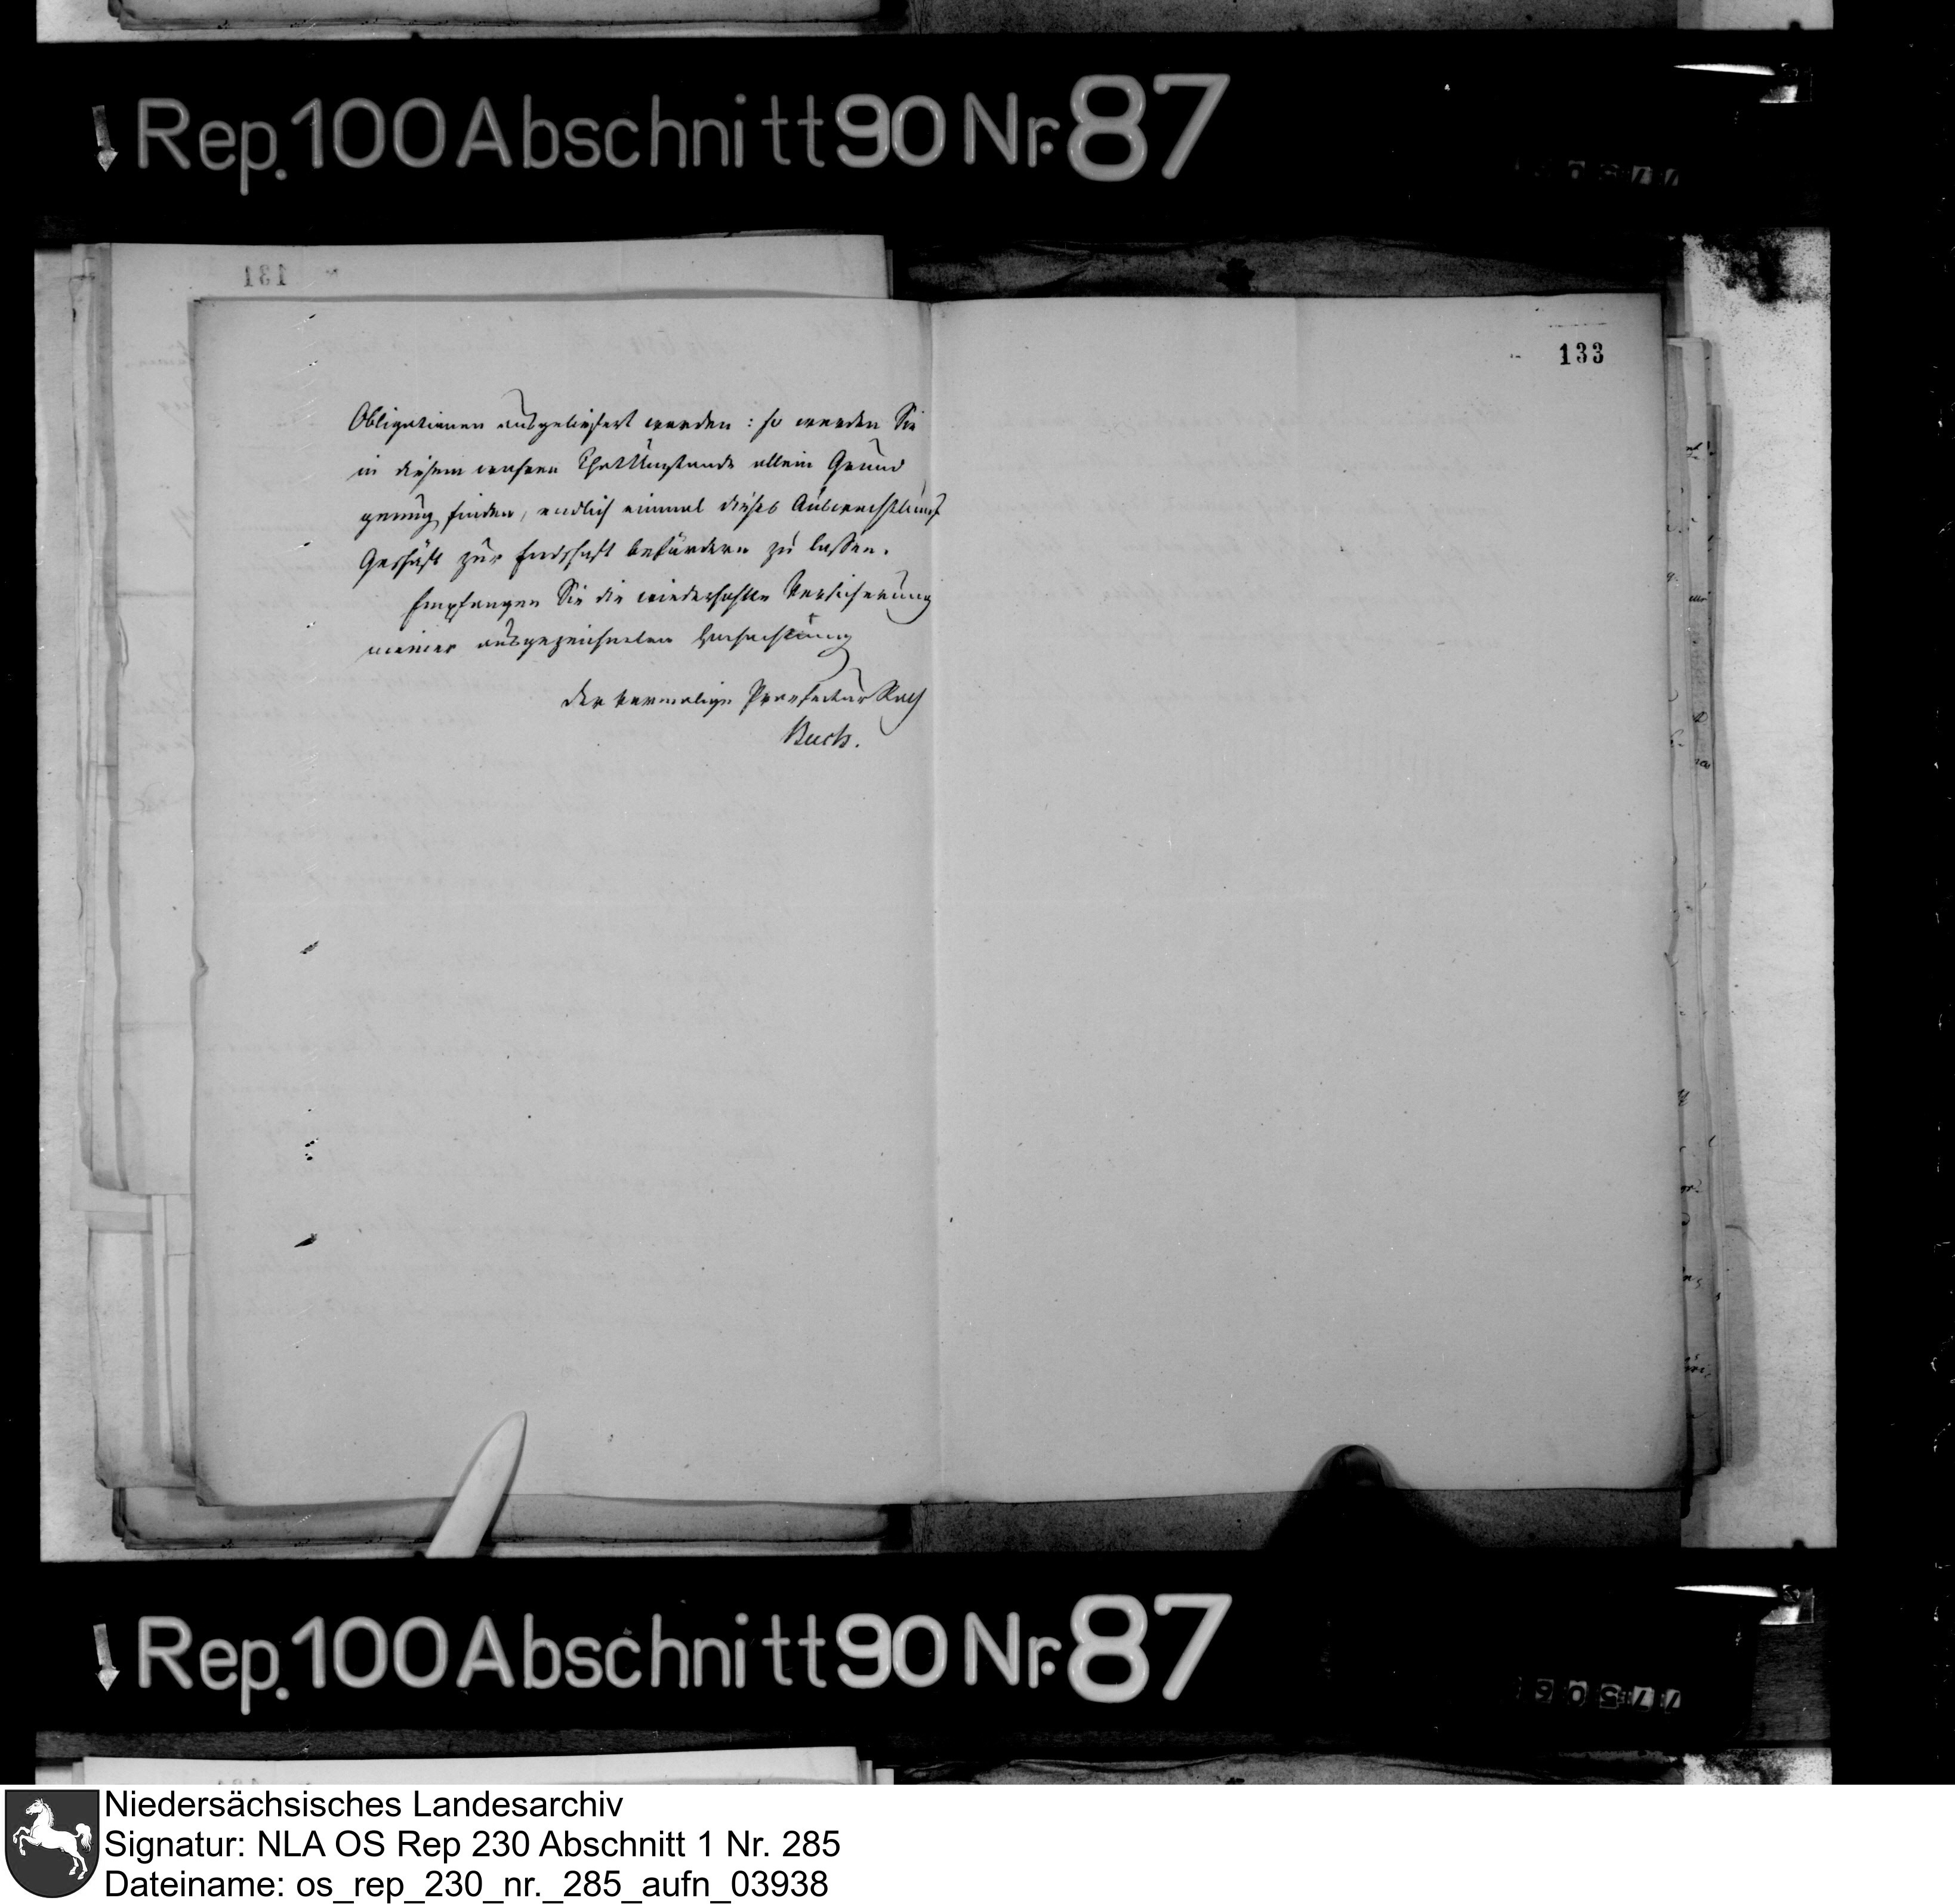 Rep. 100 Abschnitt 90 Nr. 87
131
133
Obligationen ausgeliefert werden: so werden Sie
in diesem wahren That Umstande allein Grund
genung finden, endlich einmal dieses
Geschäft zur Endschaft befürdern zu lassen.
Empfangen Sie die wiederhohlte Versicherung
meiner ausgezeichneten Hochachtung
der vormalige Praefectur Rath
Buch.
Rep. 100 Abschnitt 90 Nr. 87
Niedersächsisches Landesarchiv
Signatur: NLA OS Rep 230 Abschnitt 1 Nr. 285
Dateiname: os_rep_230_nr._285_aufn_03938